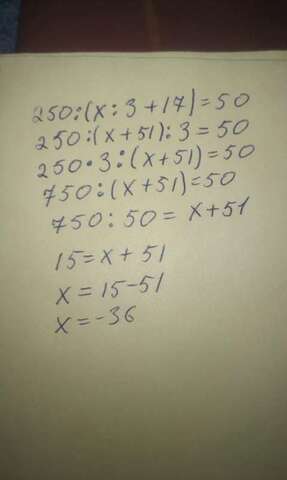 250:(x:3+17)=50
250:(x+51):3=50
250·3:(x+51)=50
750:(x+51)=50
750:50=x+51
15=x+51
x=15-51
x=-36